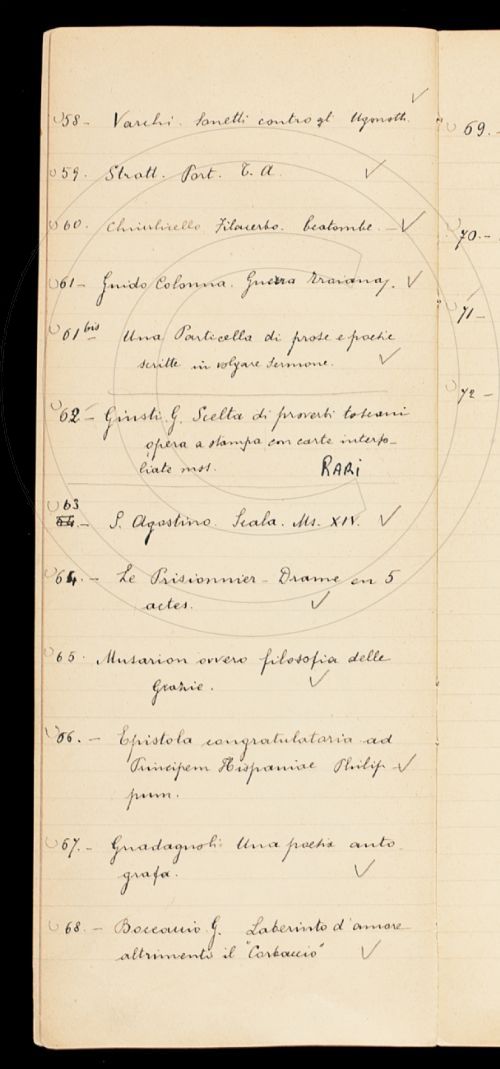 58- Varchi. Sonetti contro gl' Ugonotti.
59. Strott. Port. T. A.
60. Filacerbo.
61- Guido Colonna. Guerra Troiana.
61 bis Una Particella di prose e poesie
scritte in volgare Sermone.
62- Giusti. G. Scelta di proverbi toscani
opera a stampa con carte interfo-
liate mss. RARI
63
64.- S. Agostino. Scala. Ms. XIV.
64.- Le Prisionnier - Drame en 5
actes.
65. Musarion ovvero filosofia delle
Grazie.
66.- Epistola congratulatoria ad
Principem Hispaniae Philip-
pum.
67.- Guadagnoli: Una poesia auto-
grafa.
68.- Boccaccio G. Laberinto d'amore
altrimenti il "Corbaccio"
69.-
70.-
71-
72-